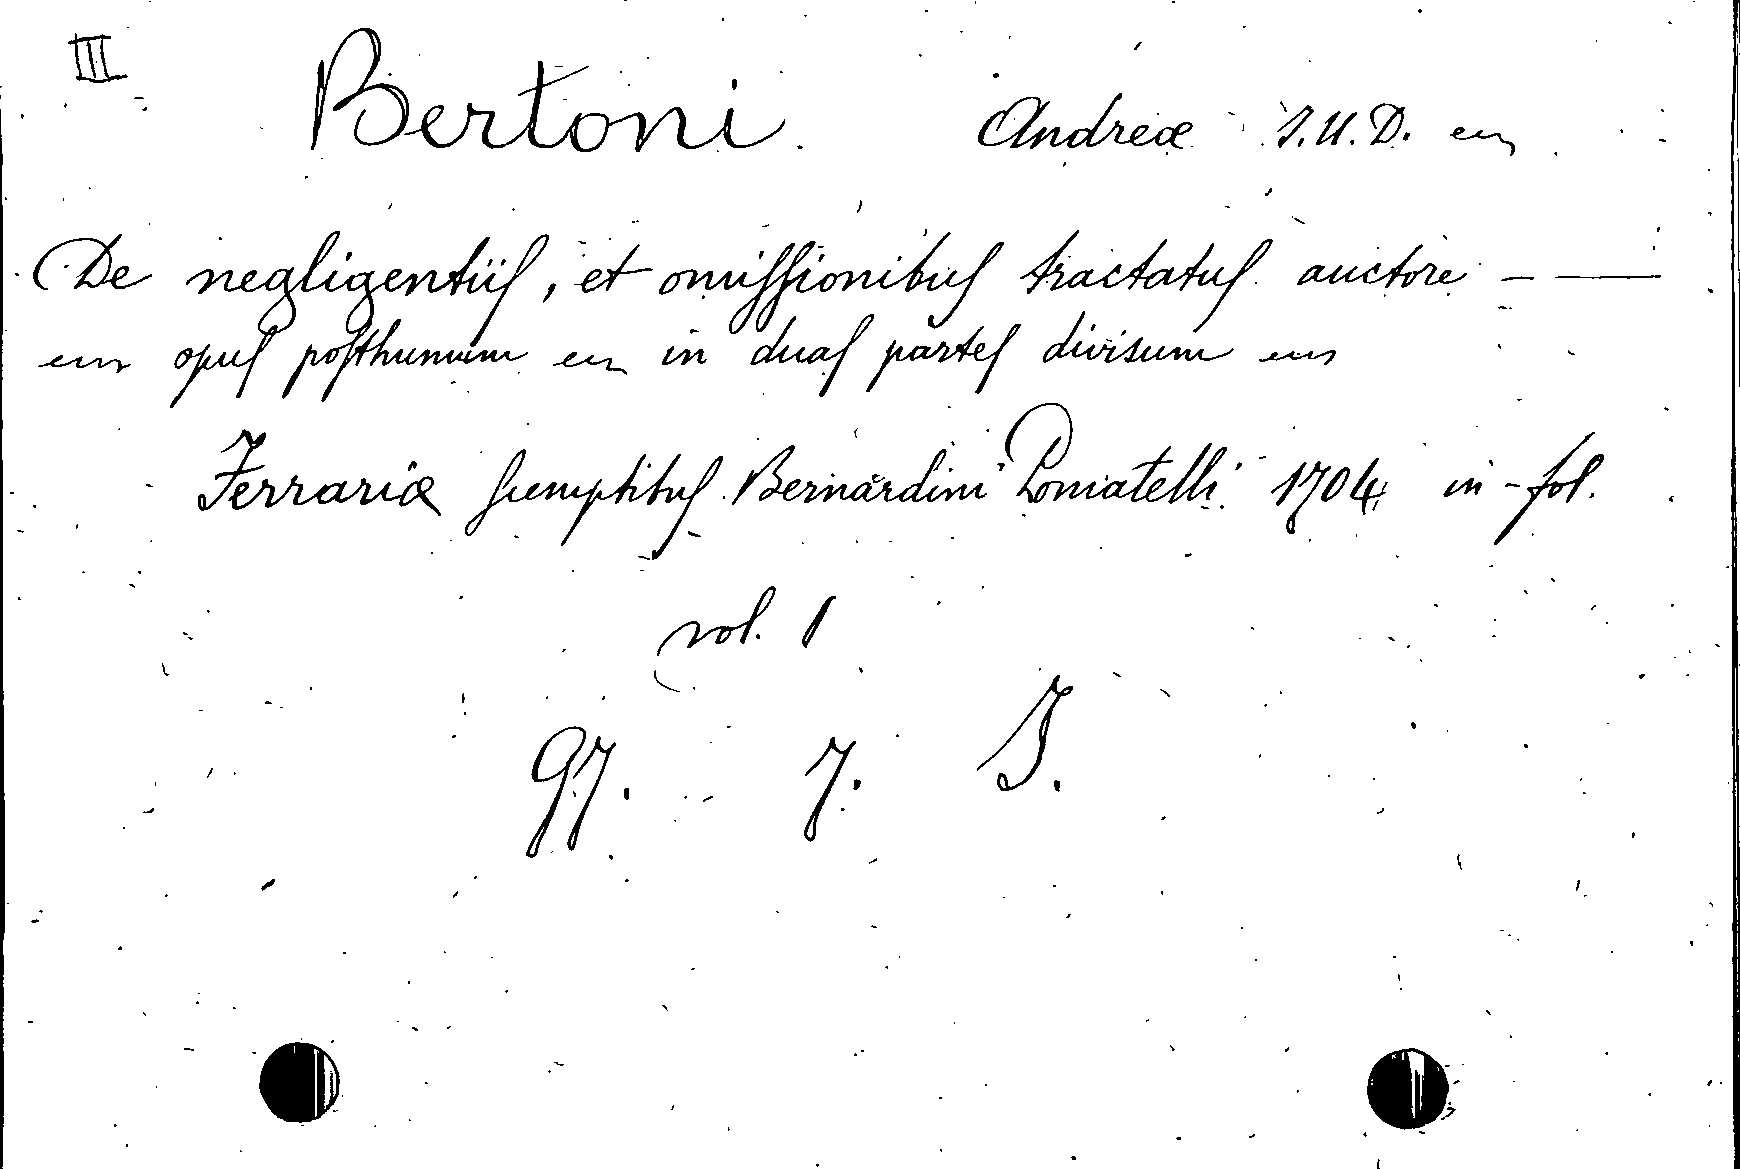 III
Bertoni Andreæ J.U.D. en
De negligentiis, et omissionibus tractatus auctore — —
en opus posthumum en in duas partes divisum en
Ferrariæ sumptibus Bernardini Pomatelli 1704 in-fol.
vol. 1
97. 7. J.